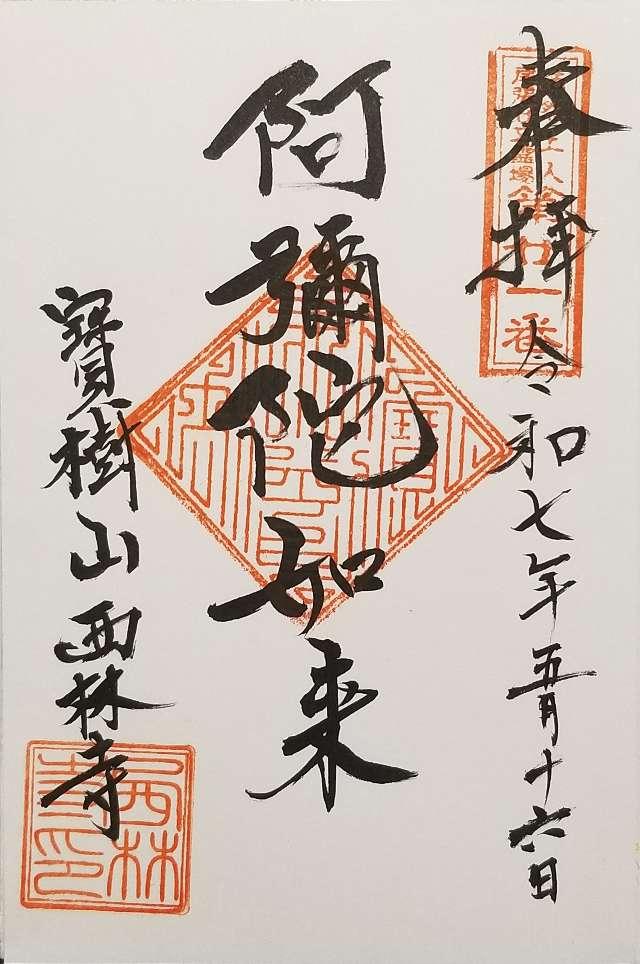 奉拝
令和七年五月十六日
第廿一番
阿彌陀如来
寶樹山西林寺
西林寺印